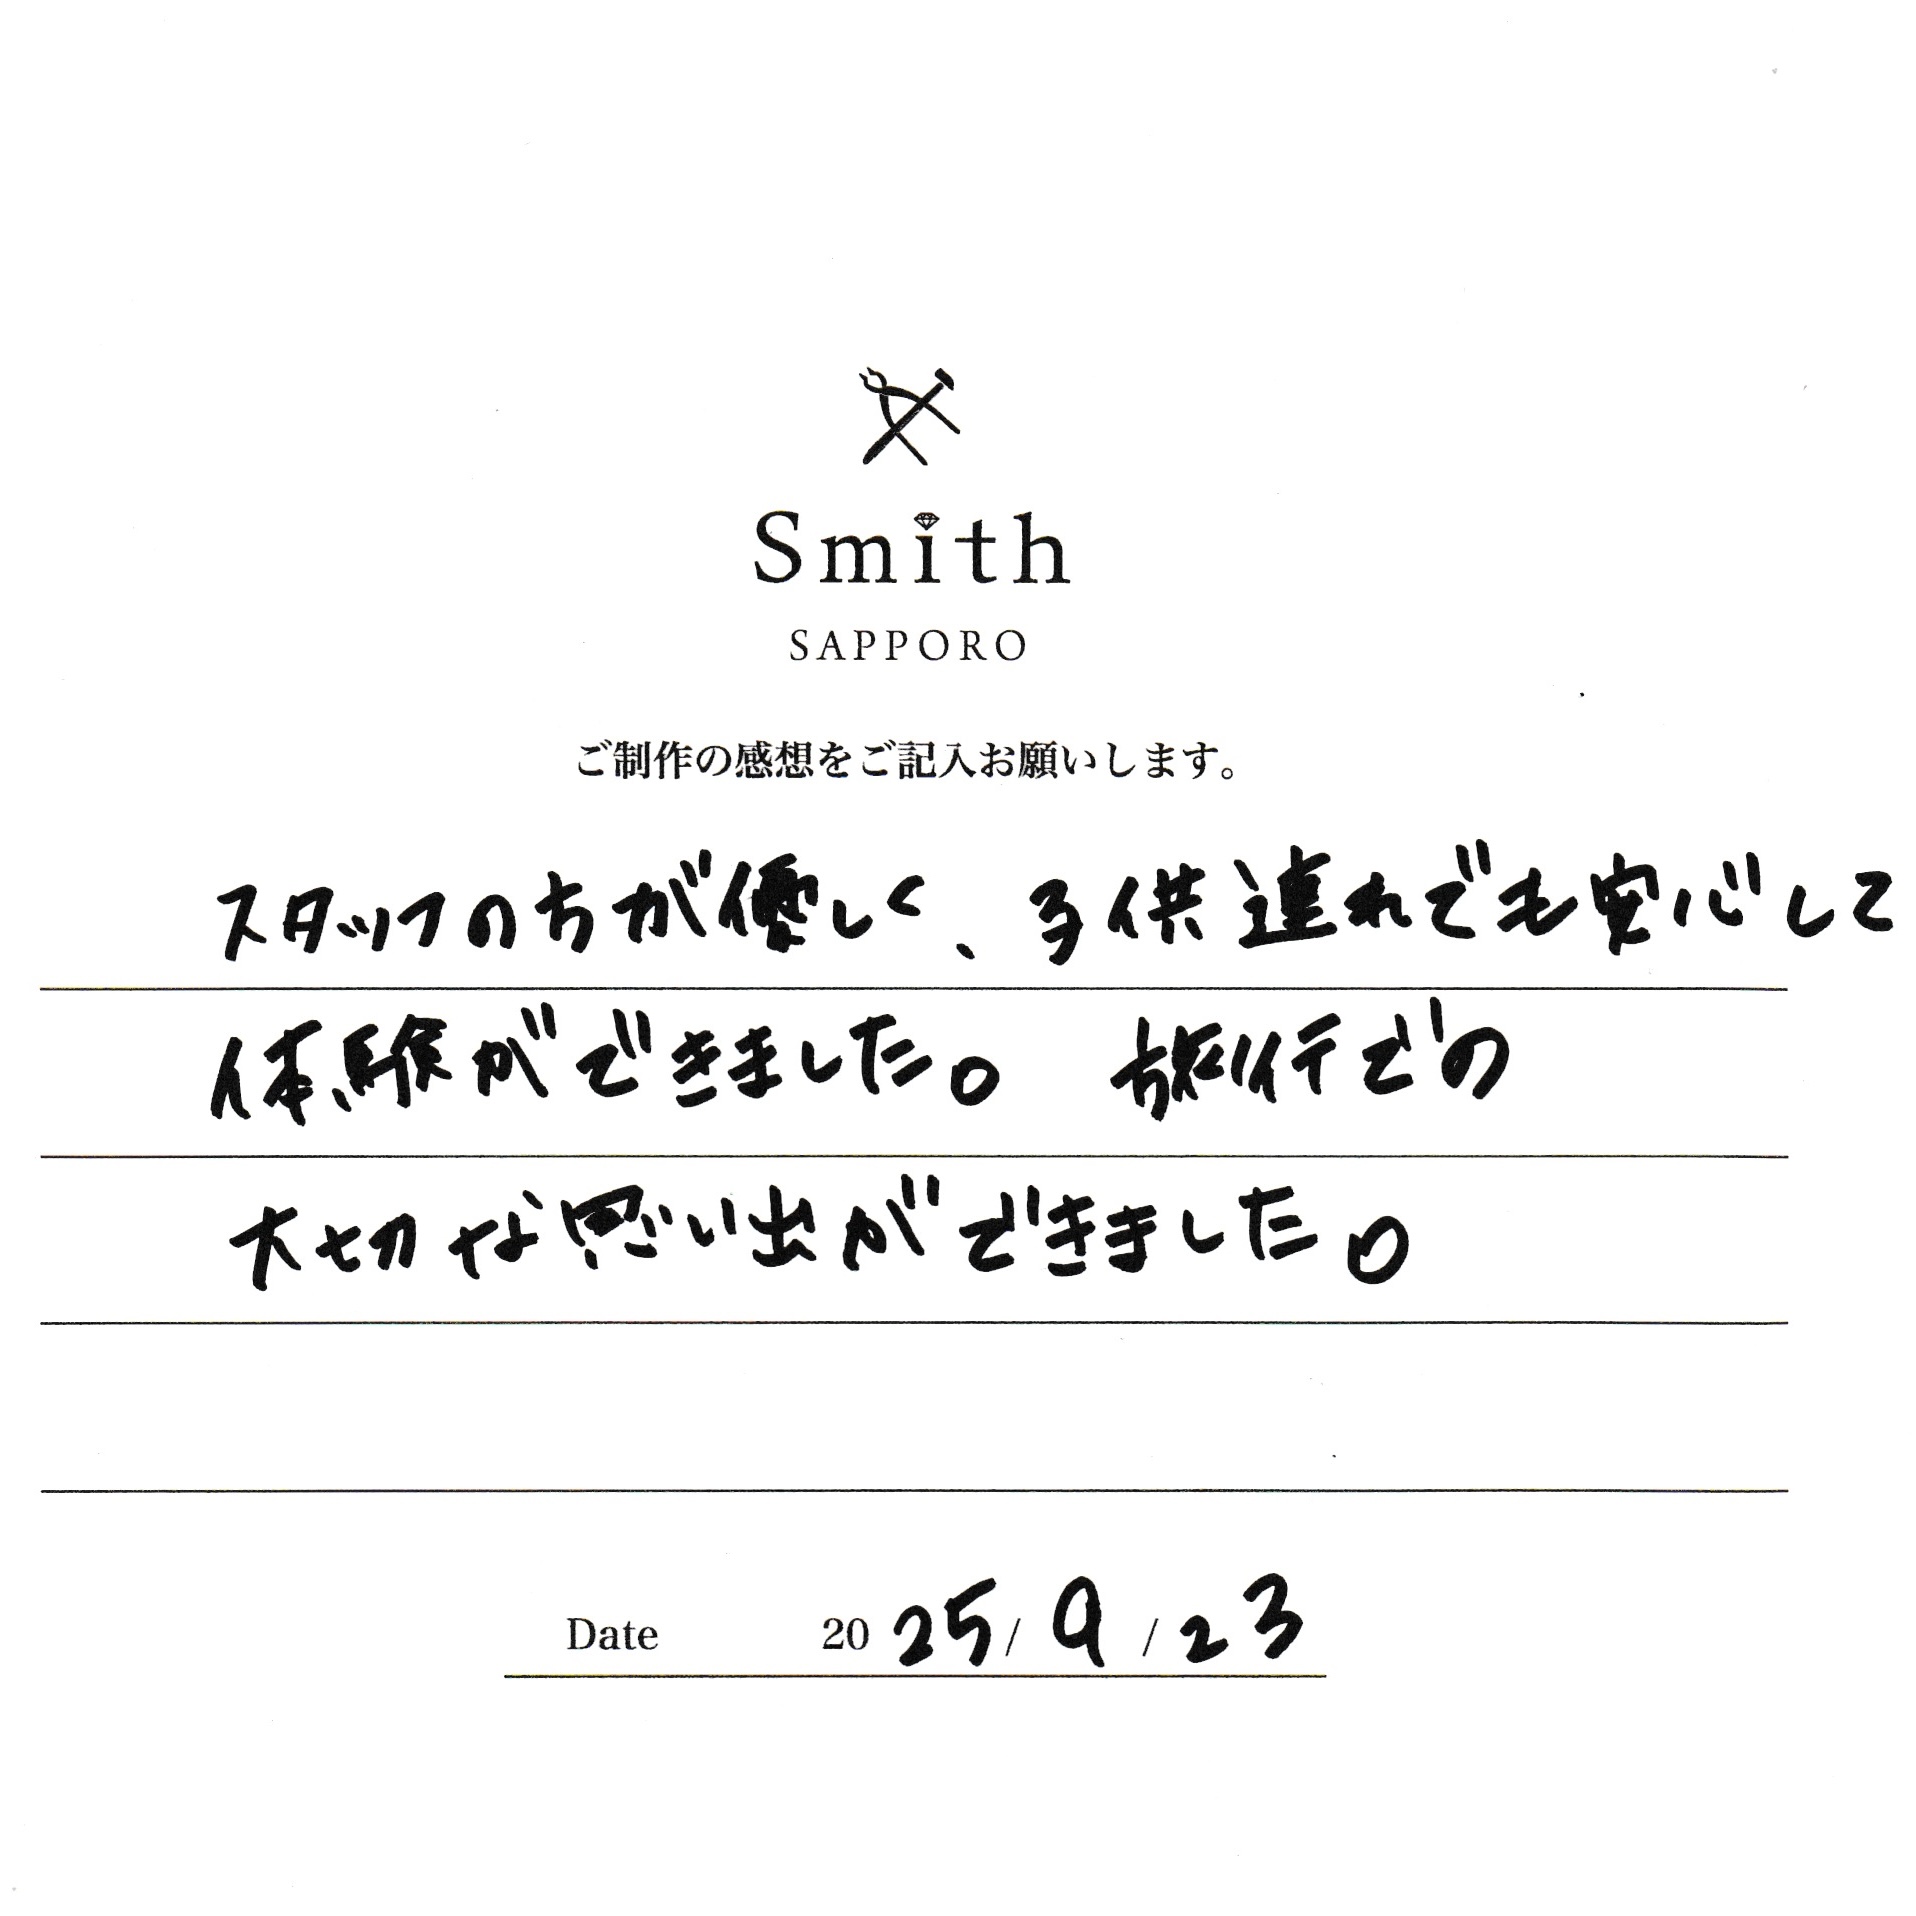 Smith
SAPPORO
ご制作の感想をご記入お願いします。
スタッフの方が優しく、子供連れでも安心して
体験ができました。 旅行での
大切な思い出ができました。
Date 2025/9/23